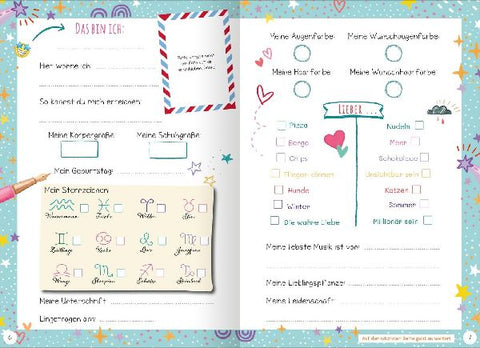 Das bin ich:
Hier wohne ich
So kannst du mich erreichen:
Meine Körpergröße:
Meine Schuhgröße:
Mein Geburtstag:
Mein Sternzeichen:
Wassermann
Fische
Widder
Stier
Zwillinge
Krebs
Löwe
Jungfrau
Waage
Skorpion
Schütze
Steinbock
Meine Unterschrift:
Eingetragen am:
6
Meine Augenfarbe:
Meine Wunschaugenfarbe:
Meine Haarfarbe:
Meine Wunschhaarfarbe:
Lieber ...
Pizza
Nudeln
Berge
Meer
Chips
Schokolade
Fliegen können
Unsichtbar sein
Hunde
Katzen
Winter
Sommer
Die wahre Liebe
Millionär sein
Meine liebste Musik ist von:
Meine Lieblingspflanze:
Meine Leidenschaft:
Auf der nächsten Seite geht es weiter!
7